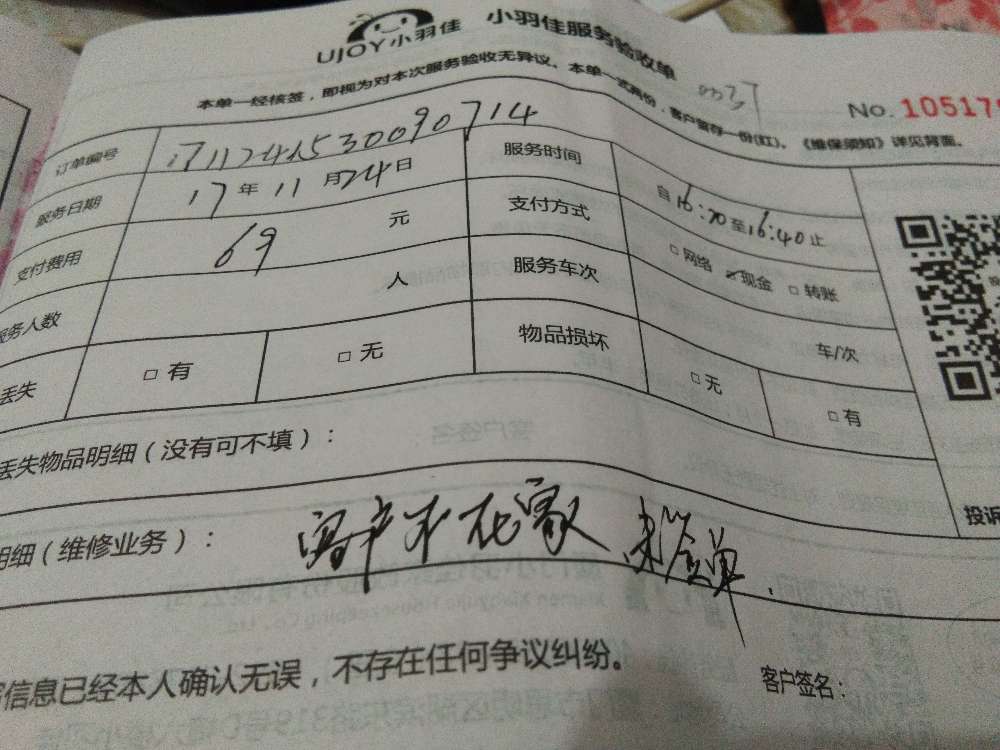 UJOY小羽佳 小羽佳服务验收单
本单一经核签，即视为对本次服务验收无异议。本单一式两份，客户留存一份(红)。《维保须知》详见背面。
No. 105179
订单编号 i711241530090714
服务时间 自16:20至16:40止
服务日期 17年11月24日
支付方式 □网络 ☑现金 □转账
支付费用 69 元
服务车次 车/次
服务人数 人
物品损坏 □无 □有
丢失 □有 □无
丢失物品明细（没有可不填）：
明细（维修业务）： 客户不在家，未签单.
信息已经本人确认无误，不存在任何争议纠纷。
客户签名：
投诉